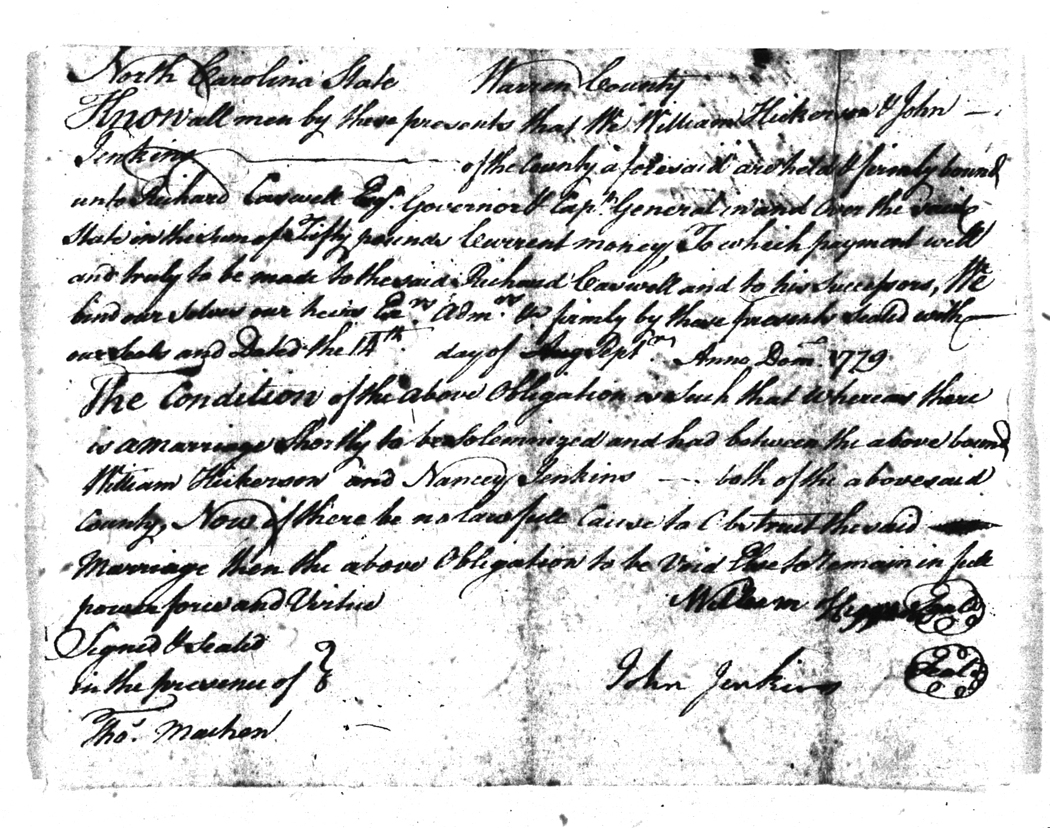 North Carolina State Warren County
Know all men by these presents that We William Hickerson & John
Jenkins of the County aforesaid are held & firmly bound
unto Richard Caswell Esqr. Governor & Capn. General in and Over the said
State in the sum of Fifty pounds Current money, To which payment well
and truly to be made to the said Richard Caswell and to his Successors, We
bind our selves our heirs Exrs. Admrs. &c firmly by these presents Sealed with
our Seals and Dated the 14th day of Sept Anno Dom 1779
The Condition of the above Obligation is such that whereas there
is a Marriage Shortly to be Solemnized and had between the above bound
William Hickerson and Nancy Jenkins both of the abovesaid
County, Now if there be no lawfull Cause to Obstruct the said
Marriage then the above Obligation to be Void Else to Remain in full
power force and Virtue William Seal
Signed & Sealed
in the presence of John Jenkins Seal
Thos. Machen